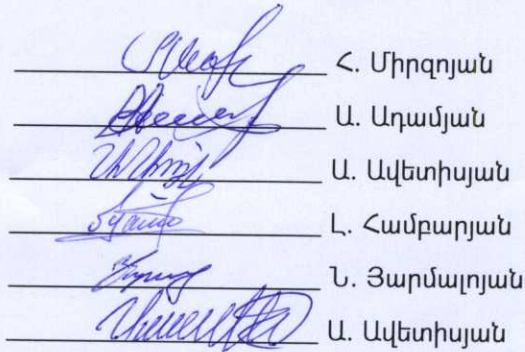 Հ. Միրզոյան
Ա. Ադամյան
Ա. Ավետիսյան
Լ. Համբարյան
Ն. Յարմալոյան
Ա. Ավետիսյան